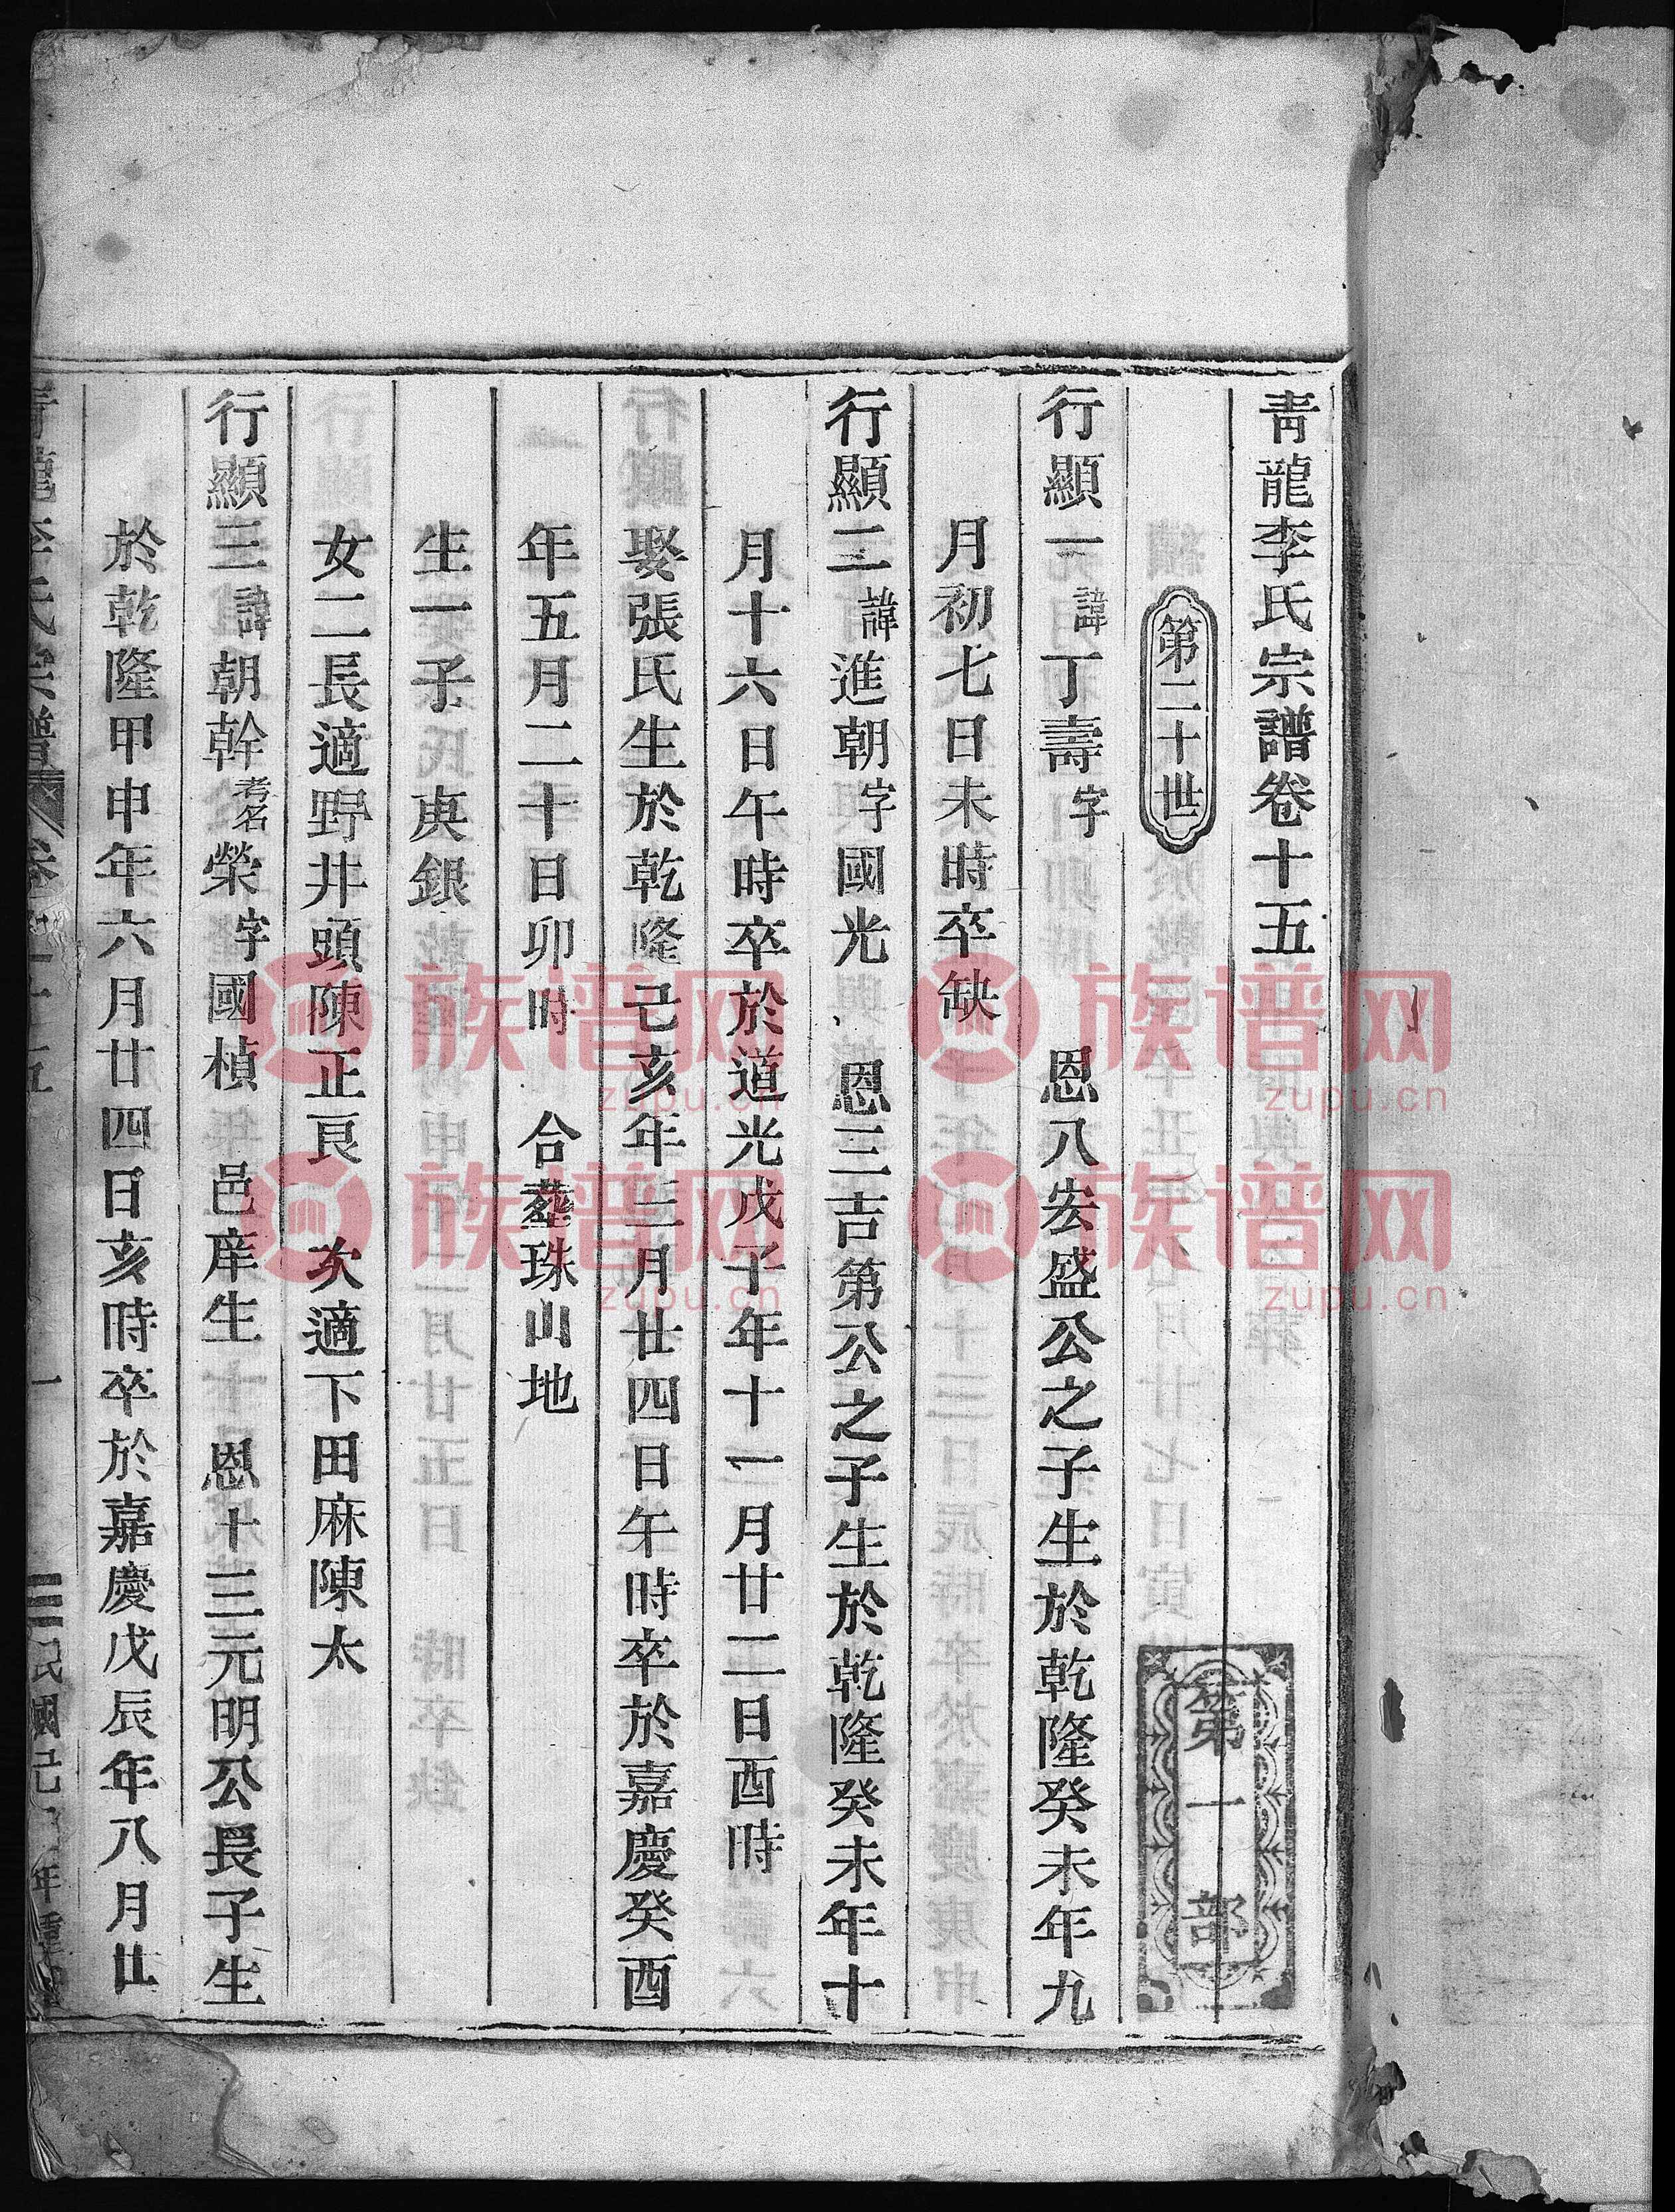 青龍李氏宗譜卷十五
第二十世
第一部
行顯一諱丁壽字 恩八宏盛公之子生於乾隆癸未年九
月初七日未時卒缺
行顯二諱進朝字國光 恩三吉第公之子生於乾隆癸未年十
月十六日午時卒於道光戊子年十一月廿二日酉時
娶張氏生於乾隆己亥年三月廿四日午時卒於嘉慶癸酉
年五月二十日卯時 合塟珠山地
生一子 庚銀
女二長適野井頭陳正良 次適下田麻陳太
行顯三諱朝幹考名榮字國楨 邑庠生 恩十三元明公長子生
於乾隆甲申年六月廿四日亥時卒於嘉慶戊辰年八月廿
青龍李氏宗譜 卷十五 一 民國己年重
族谱网
zupu.cn
族谱网
zupu.cn
族谱网
zupu.cn
族谱网
zupu.cn